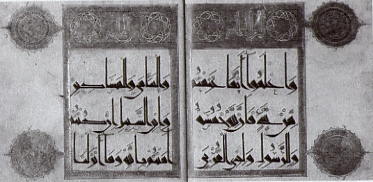 واعلموا أنما غنمتم
من شىء فأن لله خمسه
وللرسول ولذى القربى
واليتمى والمسكين
وابن السبيل إن كنتم
امنتم بالله وما أنزلنا